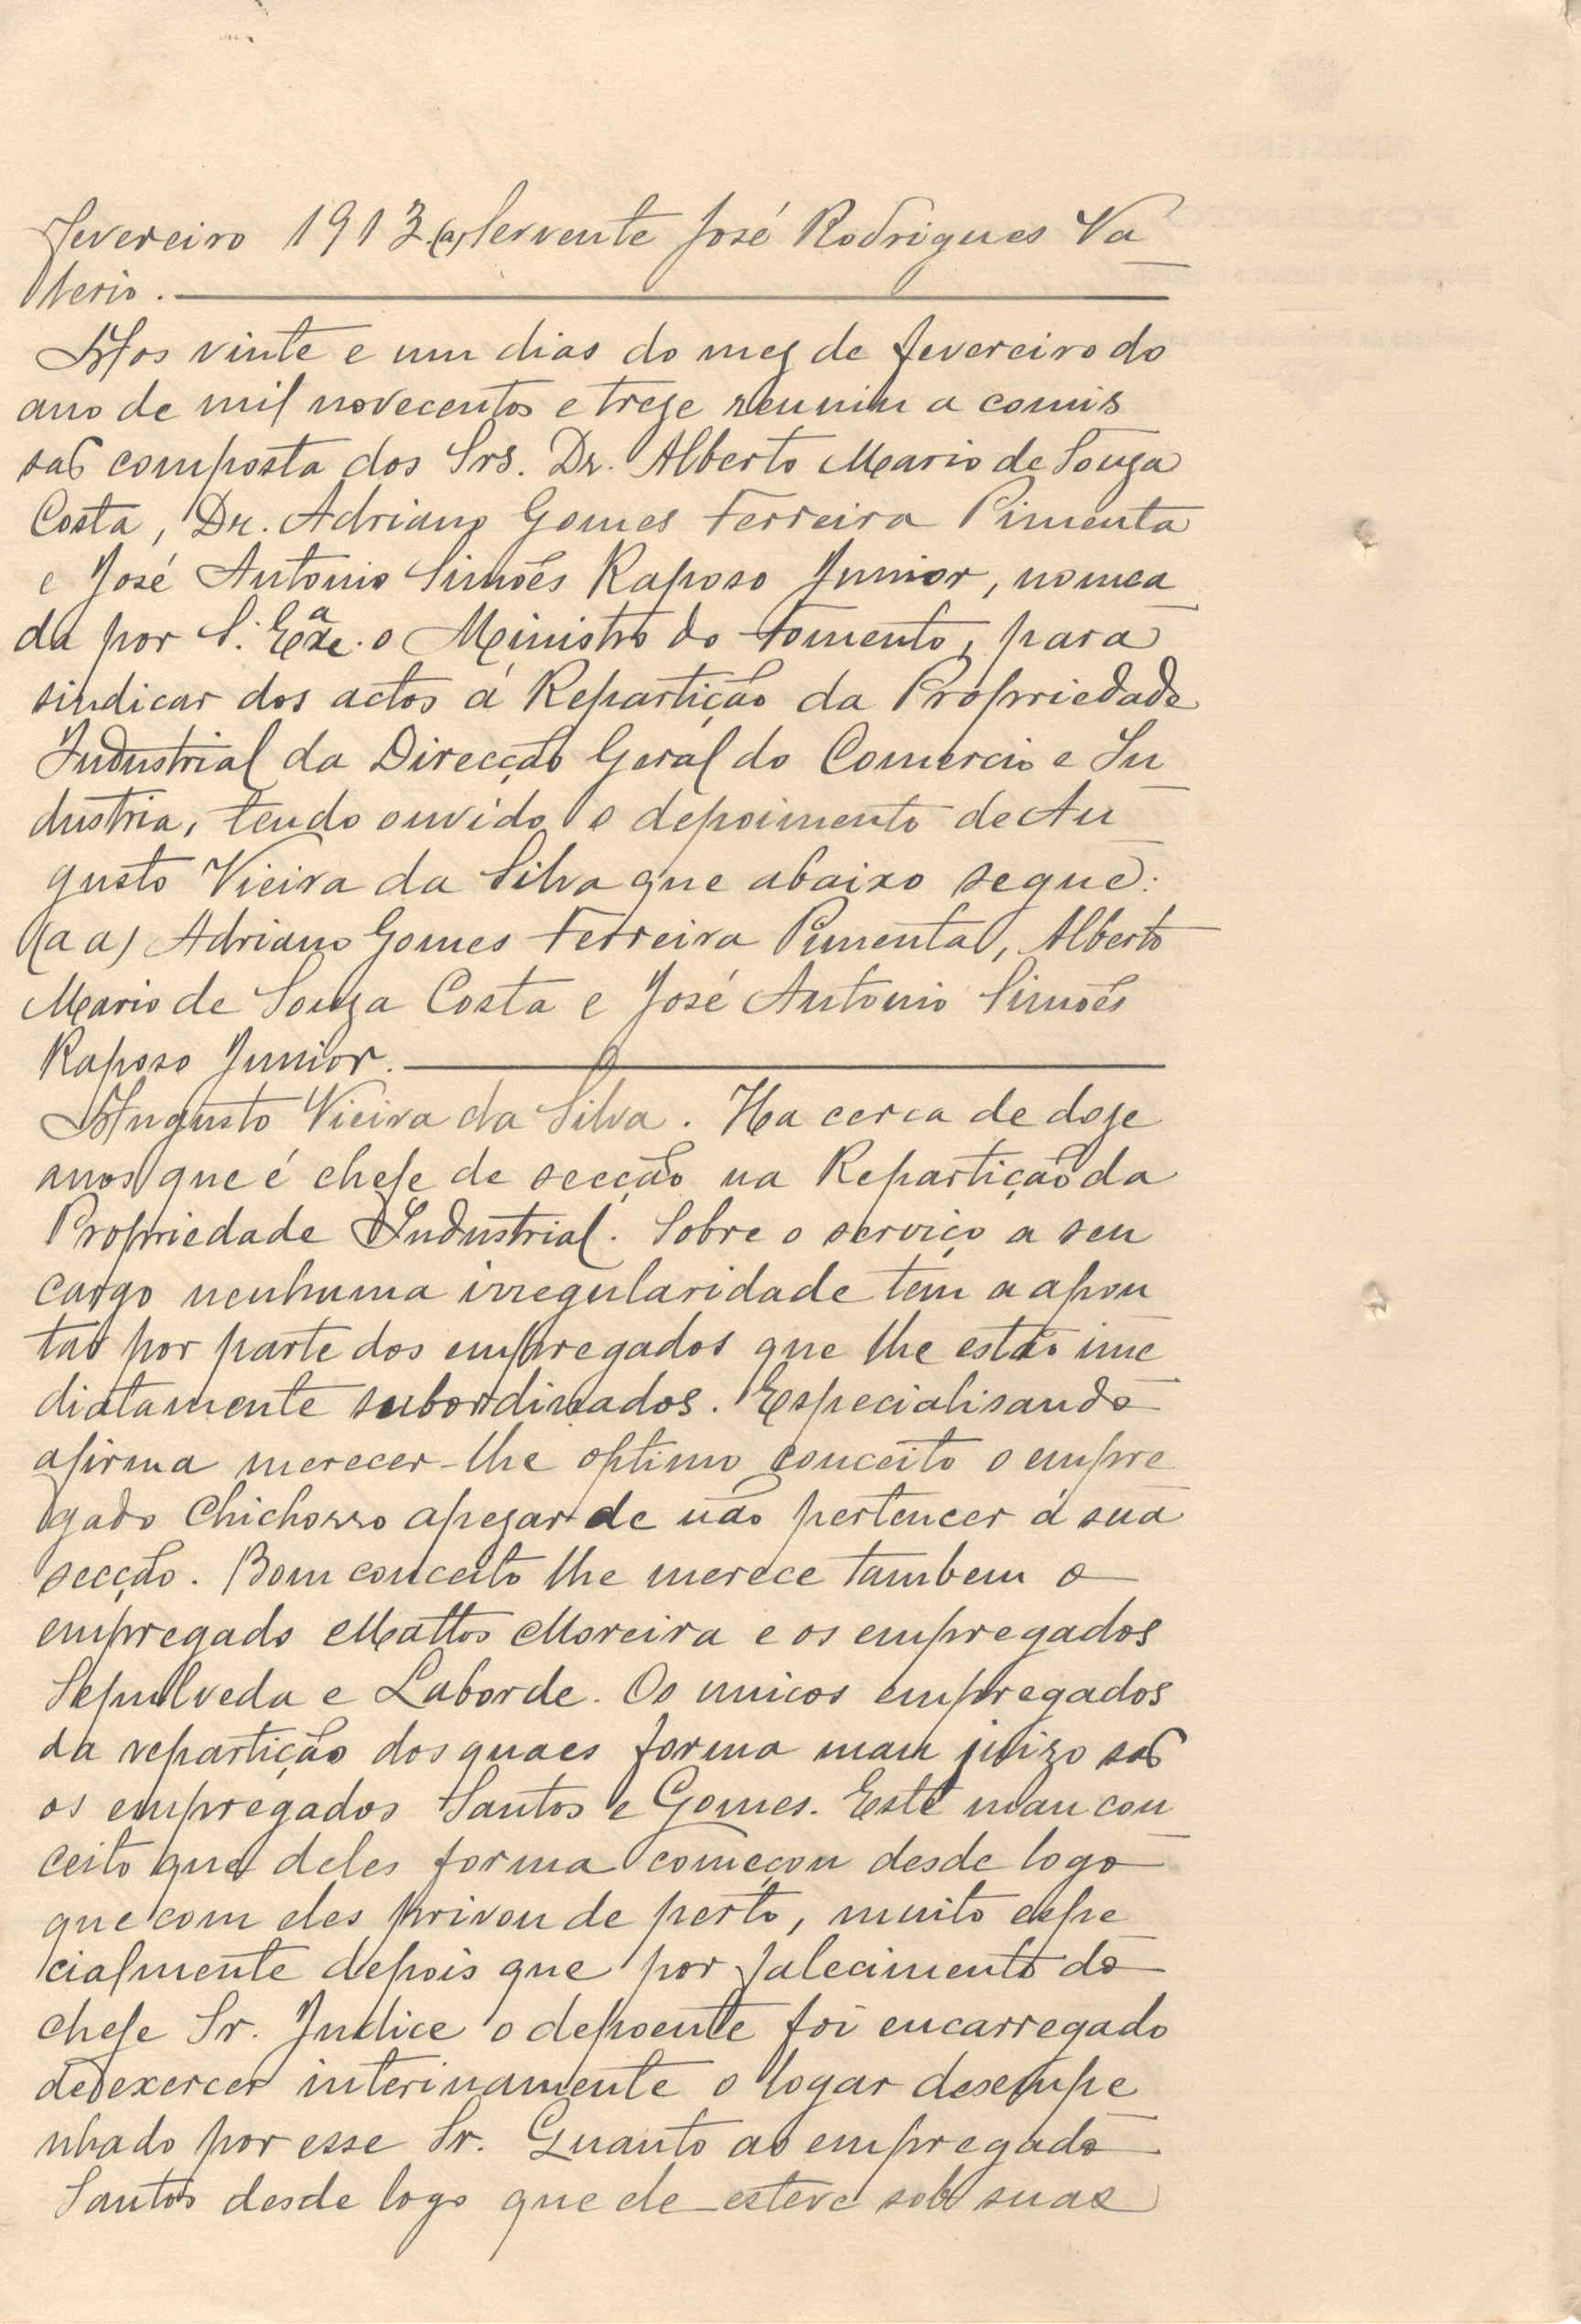 fevereiro 1913. (a) Servente José Rodrigues Va
lerio.
Aos vinte e um dias do mez de fevereiro do
ano de mil novecentos e treze reuniu a comis
são composta dos Srs. Dr. Alberto Mario de Souza
Costa, Dr. Adriano Gomes Ferreira Pimenta
e José Antonio Simões Raposo Junior, nomea
da por S. Exa. o Ministro do Fomento, para
sindicar dos actos á Repartição da Propriedade
Industrial da Direcção Geral do Comercio e In
dustria, tendo ouvido o depoimento de Au
gusto Vieira da Silva que abaixo segue:
(a a) Adriano Gomes Ferreira Pimenta, Alberto
Mario de Souza Costa e José Antonio Simões
Raposo Junior.
Augusto Vieira da Silva. Ha cerca de doze
anos que é chefe de secção na Repartição da
Propriedade Industrial. Sobre o serviço a seu
cargo nenhuma irregularidade tem a apon
tar por parte dos empregados que lhe estão ime
diatamente subordinados. Especialisando
afirma merecer-lhe optimo conceito o empre
gado Chichorro apezar de não pertencer á sua
secção. Bom conceito lhe merece tambem o
empregado Mattos Moreira e os empregados
Sepulveda e Laborde. Os unicos empregados
da repartição dos quaes forma mau juizo são
os empregados Santos e Gomes. Este mau con
ceito que deles forma começou desde logo
que com eles privou de perto, muito espe
cialmente depois que por falecimento do
chefe Sr. Judice o depoente foi encarregado
de exercer interinamente o logar desempe
nhado por esse Sr. Quanto ao empregado
Santos desde logo que ele esteve sob suas